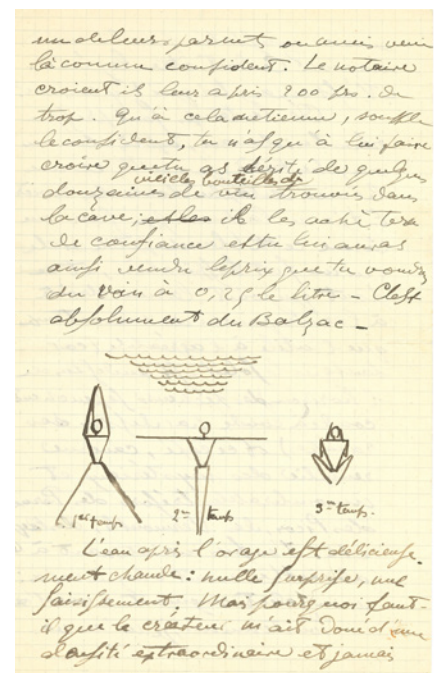 un de leurs parents ou amis venu
là comme confident. Le notaire
croient ils leur a pris 200 frs. de
trop. Qu'à cela ne tienne, souffle
le confident, tu n'as qu'à lui faire
croire que tu as hérité de quelques
vieilles bouteilles de
douzaines de vin trouvées dans
la cave; il les achètera
de confiance et tu lui auras
ainsi vendu le prix que tu voudras
du vin à 0,25 le litre - C'est
absolument du Balzac -
1er temps
2me temps
3me temps.
L'eau après l'orage est délicieuse-
ment chaude: nulle surprise, nul
saisissement. Mais pourquoi faut-
il que le créateur m'ait doué d'une
densité extraordinaire et jamais